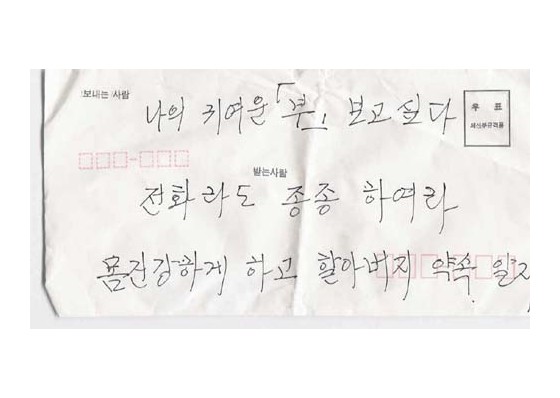 보내는 사람
나의 귀여운 「부」 보고싶다
우 표
받는사람
전화라도 종종 하여라
몸건강하게 하고 할아버지 약속